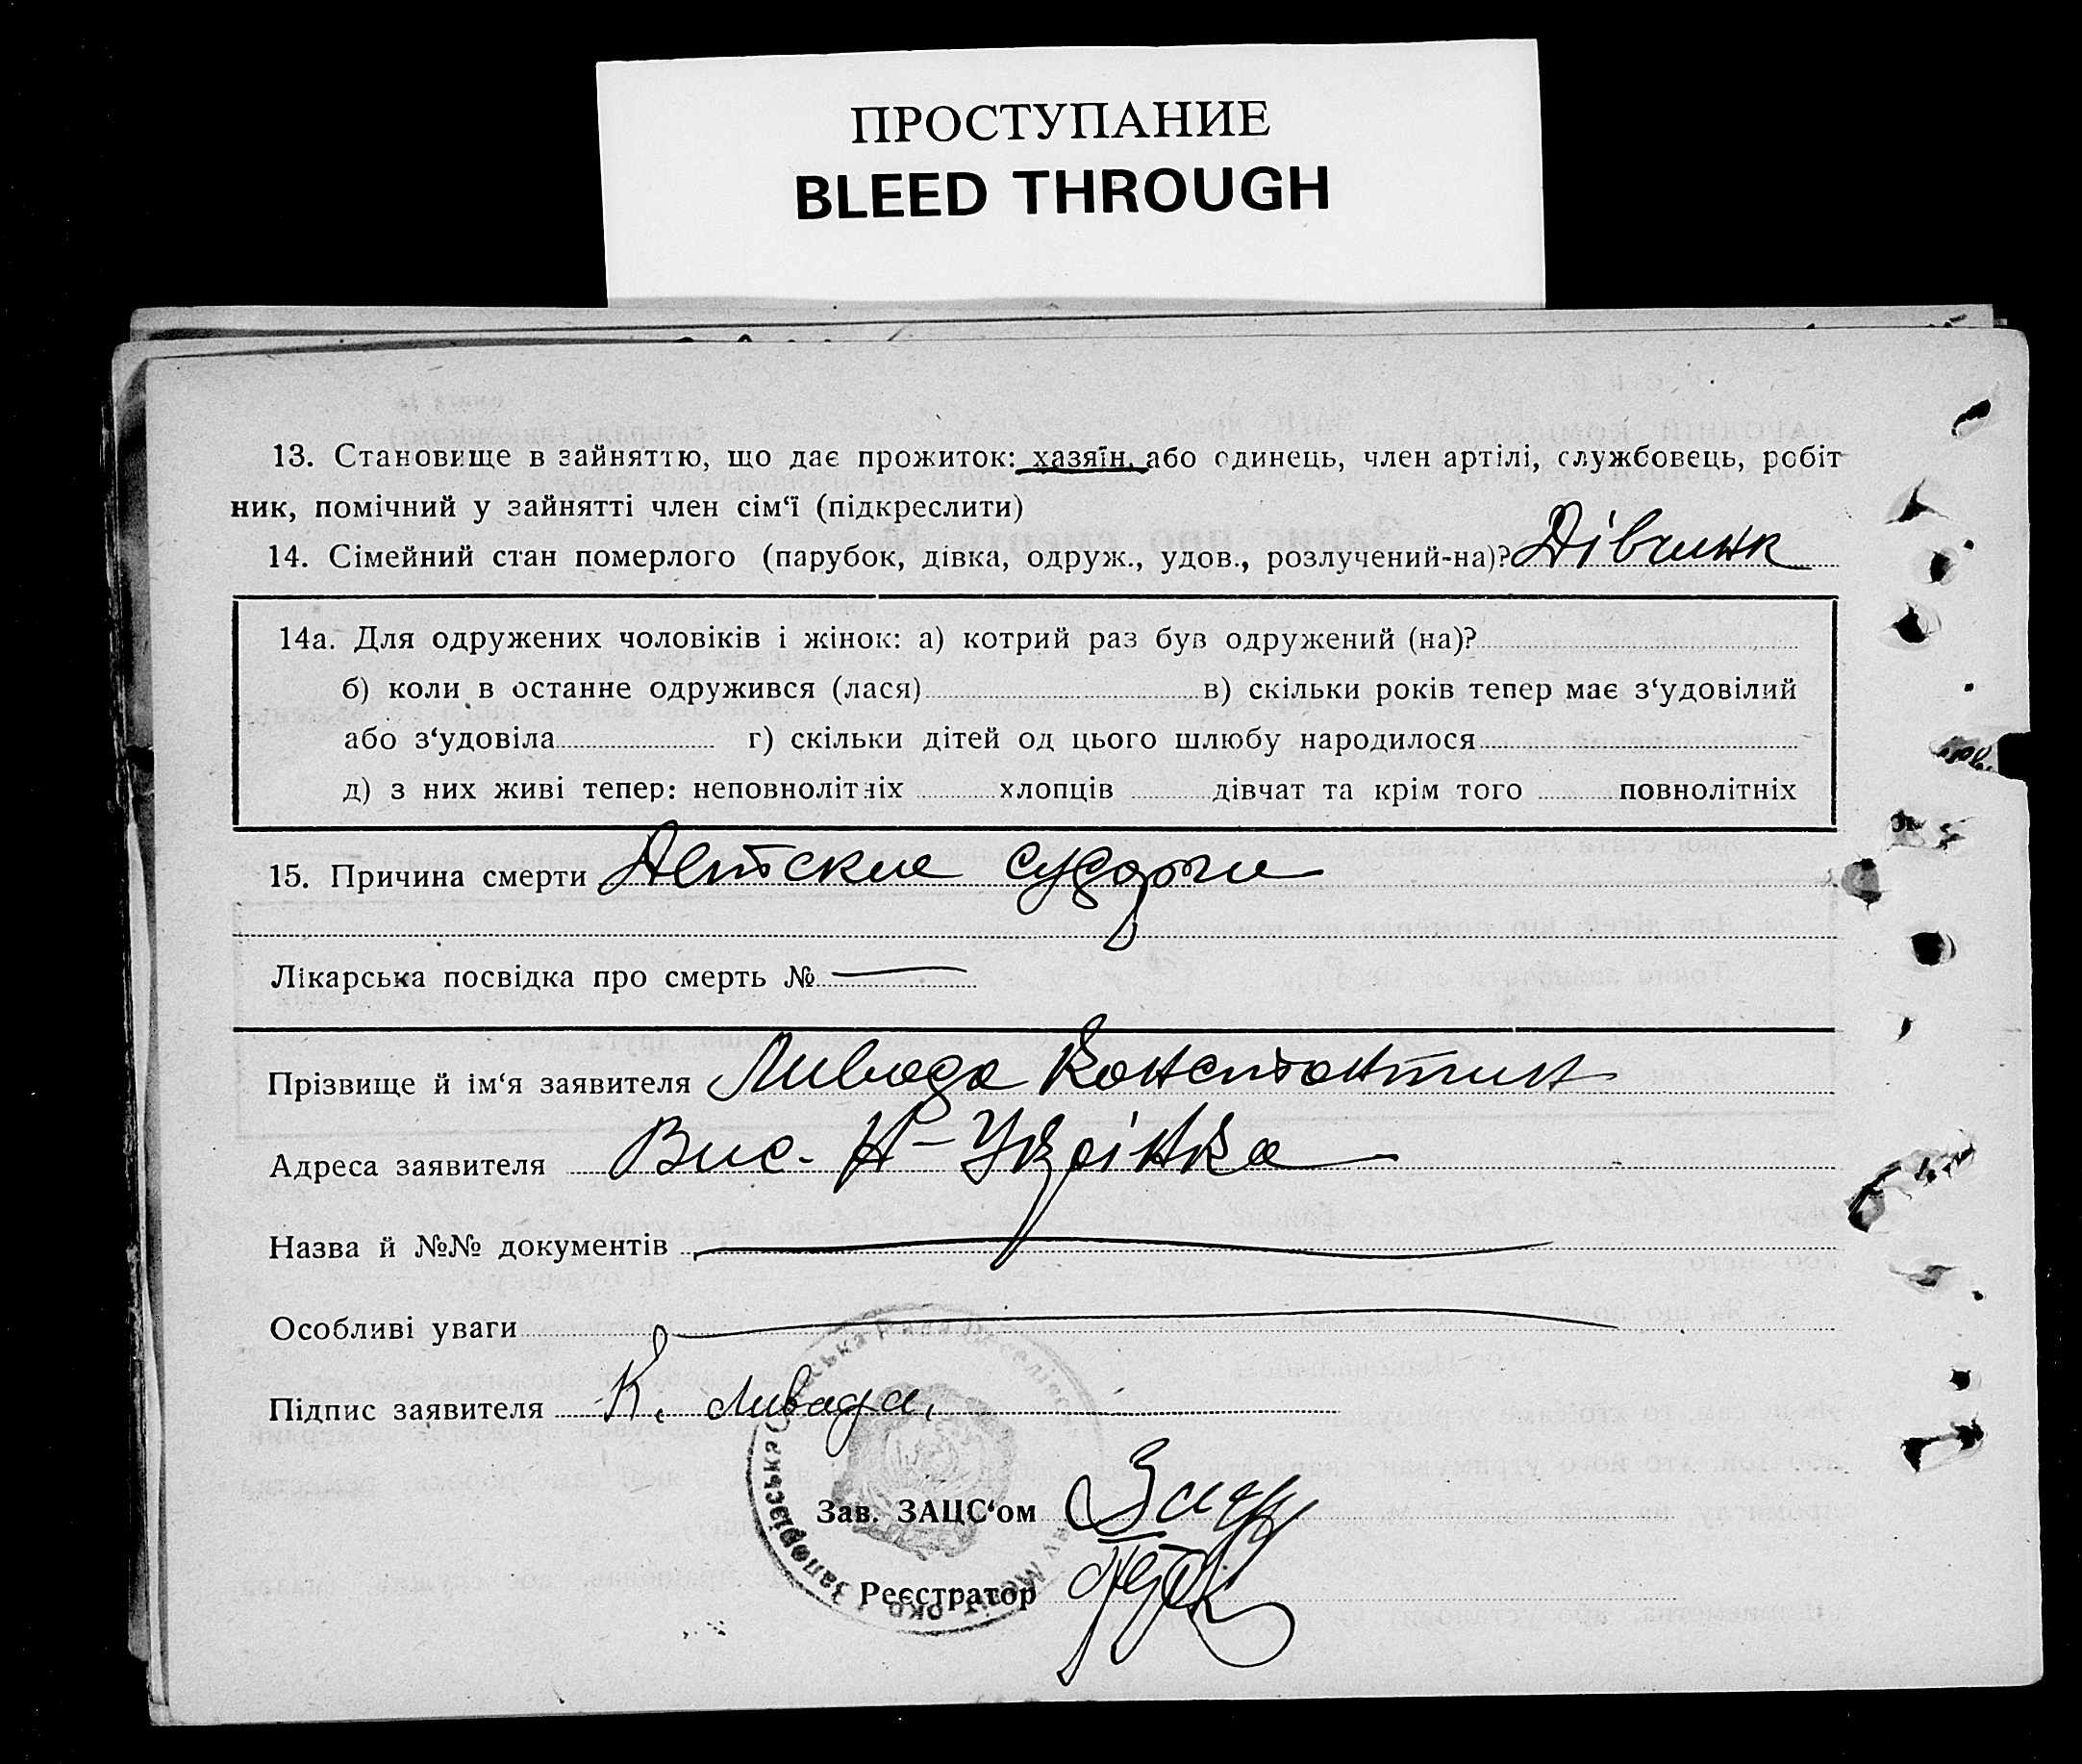 ПРОСТУПАНИЕ
BLEED THROUGH
13. Становище в зайняттю, що дає прожиток: хазяїн, або одинець, член артілі, службовець, робіт
ник, помічний у зайнятті член сім‘ї (підкреслити)
14. Сімейний стан померлого (парубок, дівка, одруж., удов., розлучений-на)? Дівчинк
14а. Для одружених чоловіків і жінок: а) котрий раз був одружений (на)?
б) коли в останне одружився (лася) в) скільки років тепер має з‘удовілий
або з‘удовіла г) скільки дітей од цього шлюбу народилося
д) з них живі тепер: неповнолітніх хлопців дівчат та крім того повнолітніх
15. Причина смерти Детские судорги
Лікарська посвідка про смерть №
Прізвище й ім‘я заявителя Ливада Константин
Адреса заявителя Вис. Н-Українка
Назва й №№ документів
Особливі уваги
Підпис заявителя К. Ливада.
Зав. ЗАЦС‘ом
Реєстратор